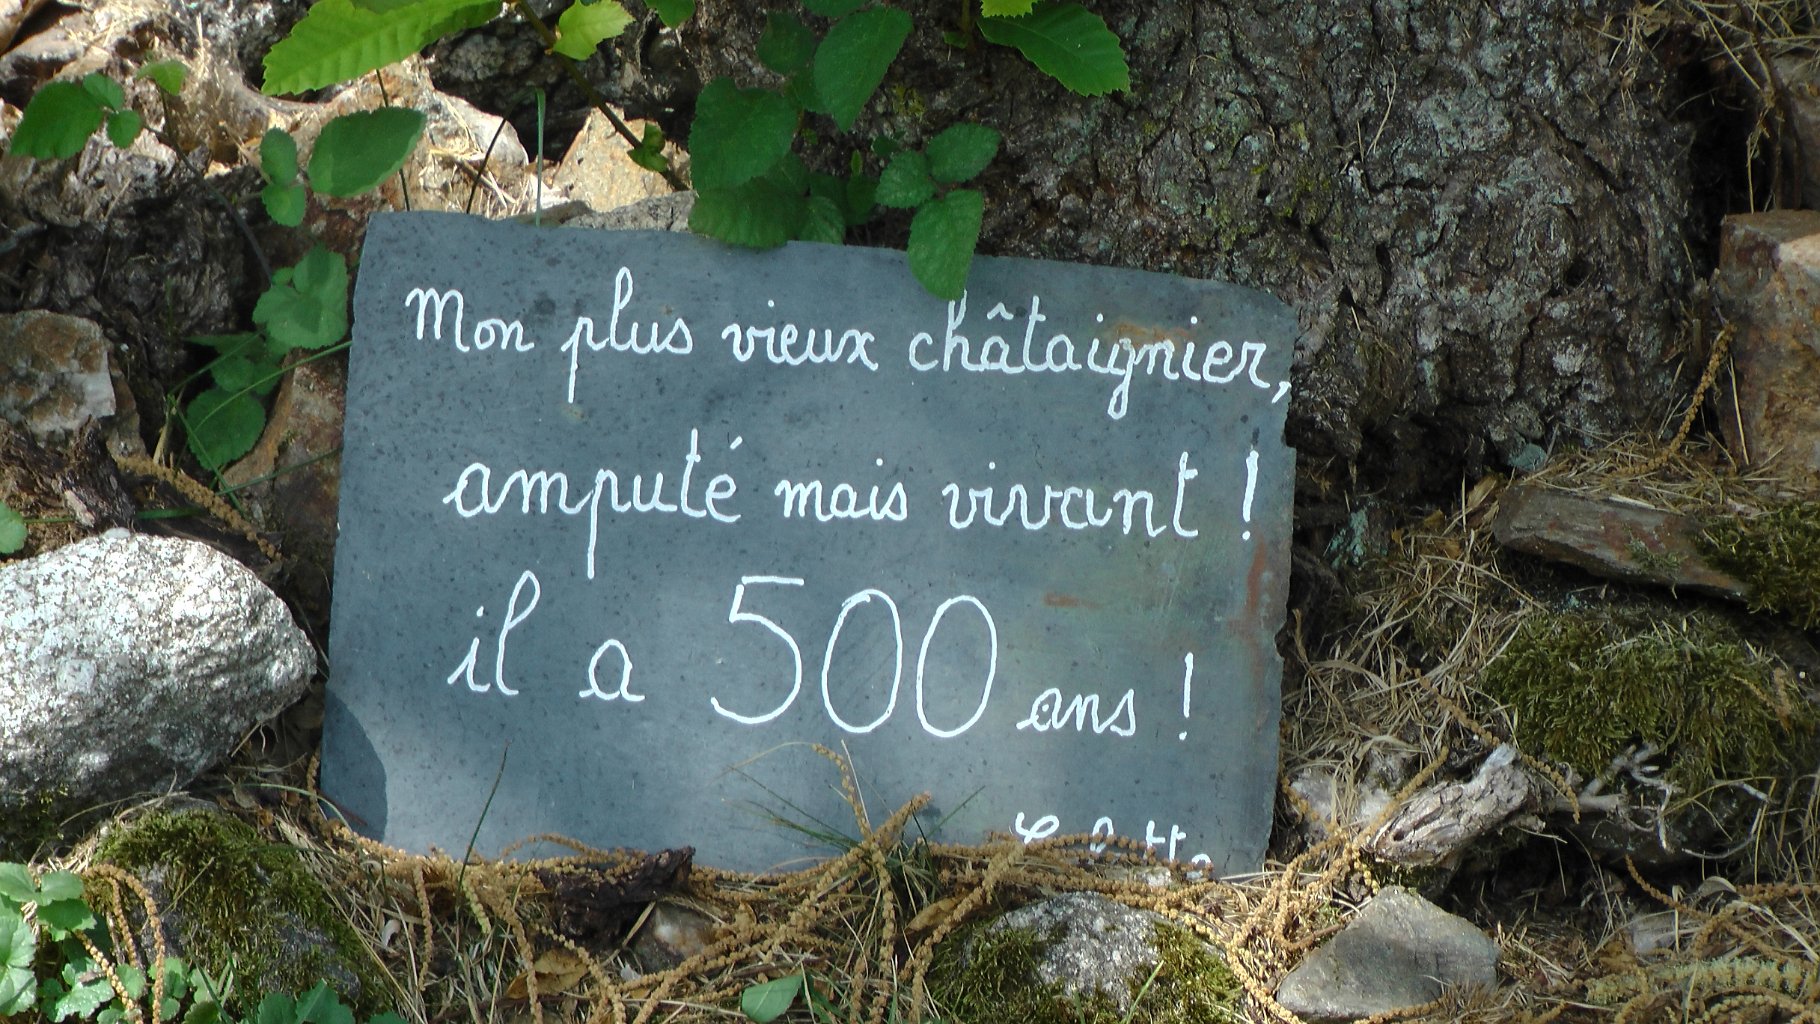 Mon plus vieux châtaignier,
amputé mais vivant !
il a 500 ans !